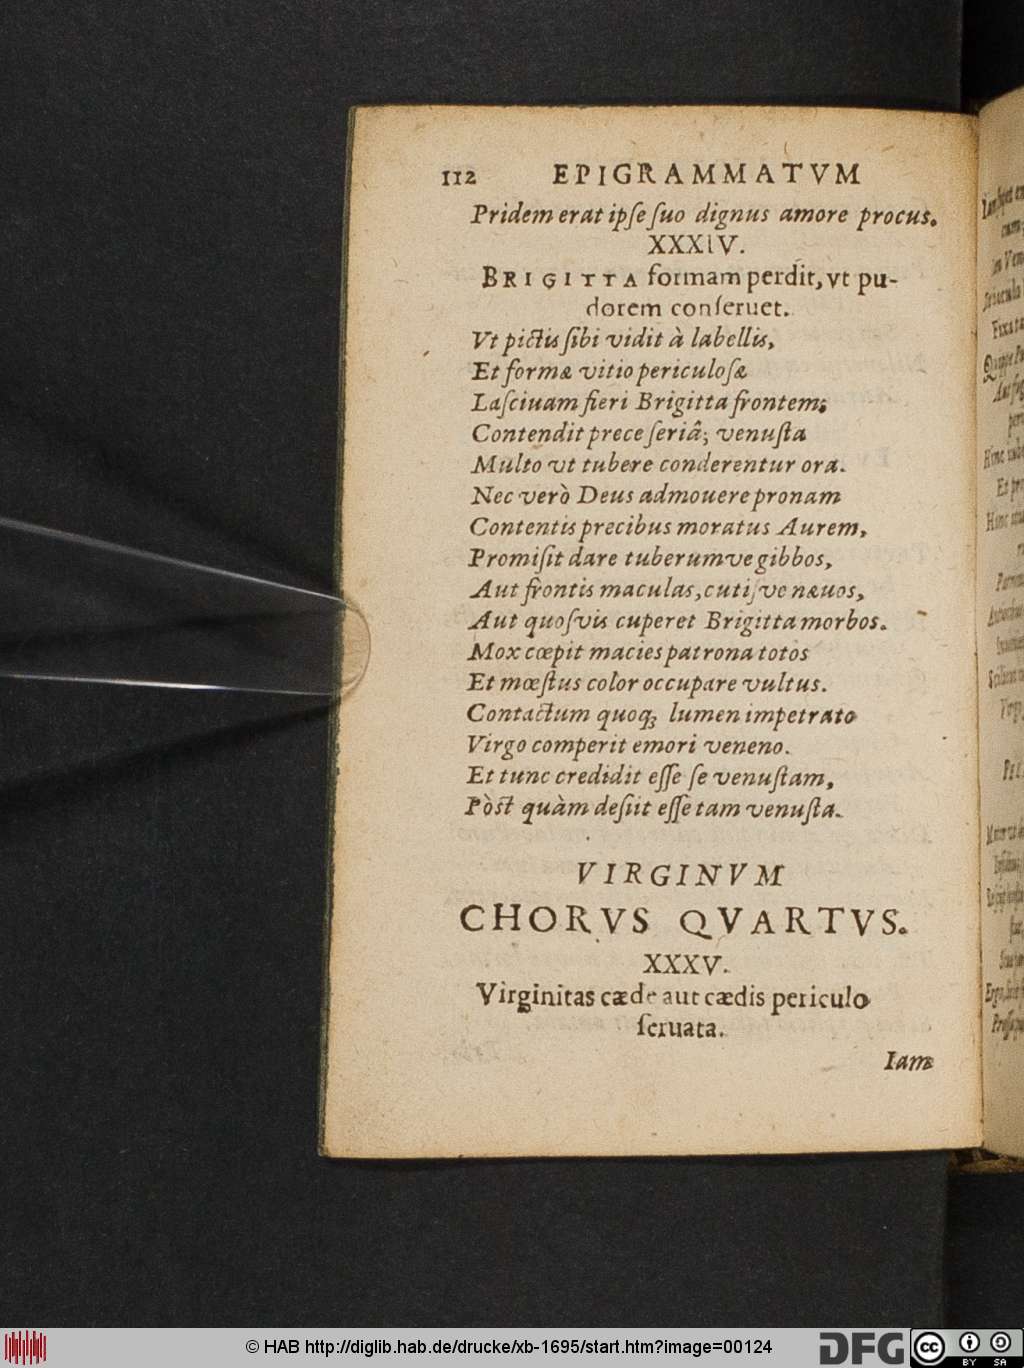 112 EPIGRAMMATVM
Pridem erat ipſe ſuo dignus amore procus.
XXXIV.
BRIGITTA formam perdit, vt pu-
dorem conſeruet.
Vt pictis ſibi vidit à labellis,
Et formæ vitio periculoſæ
Laſciuam fieri Brigitta frontem;
Contendit prece ſeriâ; venuſta
Multo vt tubere conderentur ora.
Nec verò Deus admouere pronam
Contentis precibus moratus Aurem,
Promiſit dare tuberumve gibbos,
Aut frontis maculas, cutiſve næuos,
Aut quoſvis cuperet Brigitta morbos.
Mox cœpit macies patrona totos
Et mœſtus color occupare vultus.
Contactum quoq; lumen impetrato
Virgo comperit emori veneno.
Et tunc credidit eſſe ſe venuſtam,
Pòſt quàm deſiit eſſe tam venuſta.
VIRGINVM
CHORVS QVARTVS.
XXXV.
Virginitas cæde aut cædis periculo
ſeruata.
Iam
© HAB http://diglib.hab.de/drucke/xb-1695/start.htm?image=00124
DFG
cc
BY SA